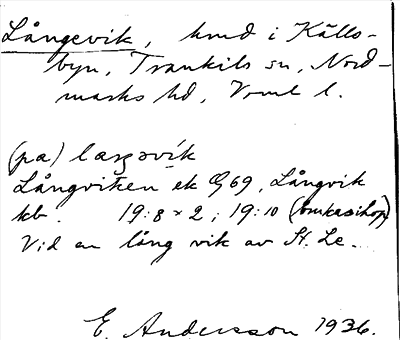 Långevik, hmd i Källs-
byn, Trankils sn, Nord-
marks hd, Vrml l.
(pa)
Långviken ek G 69, Långvik
kb. 19:8 x 2; 19:10
Vid en lång vik av St. Le...
E. Andersson 1936.